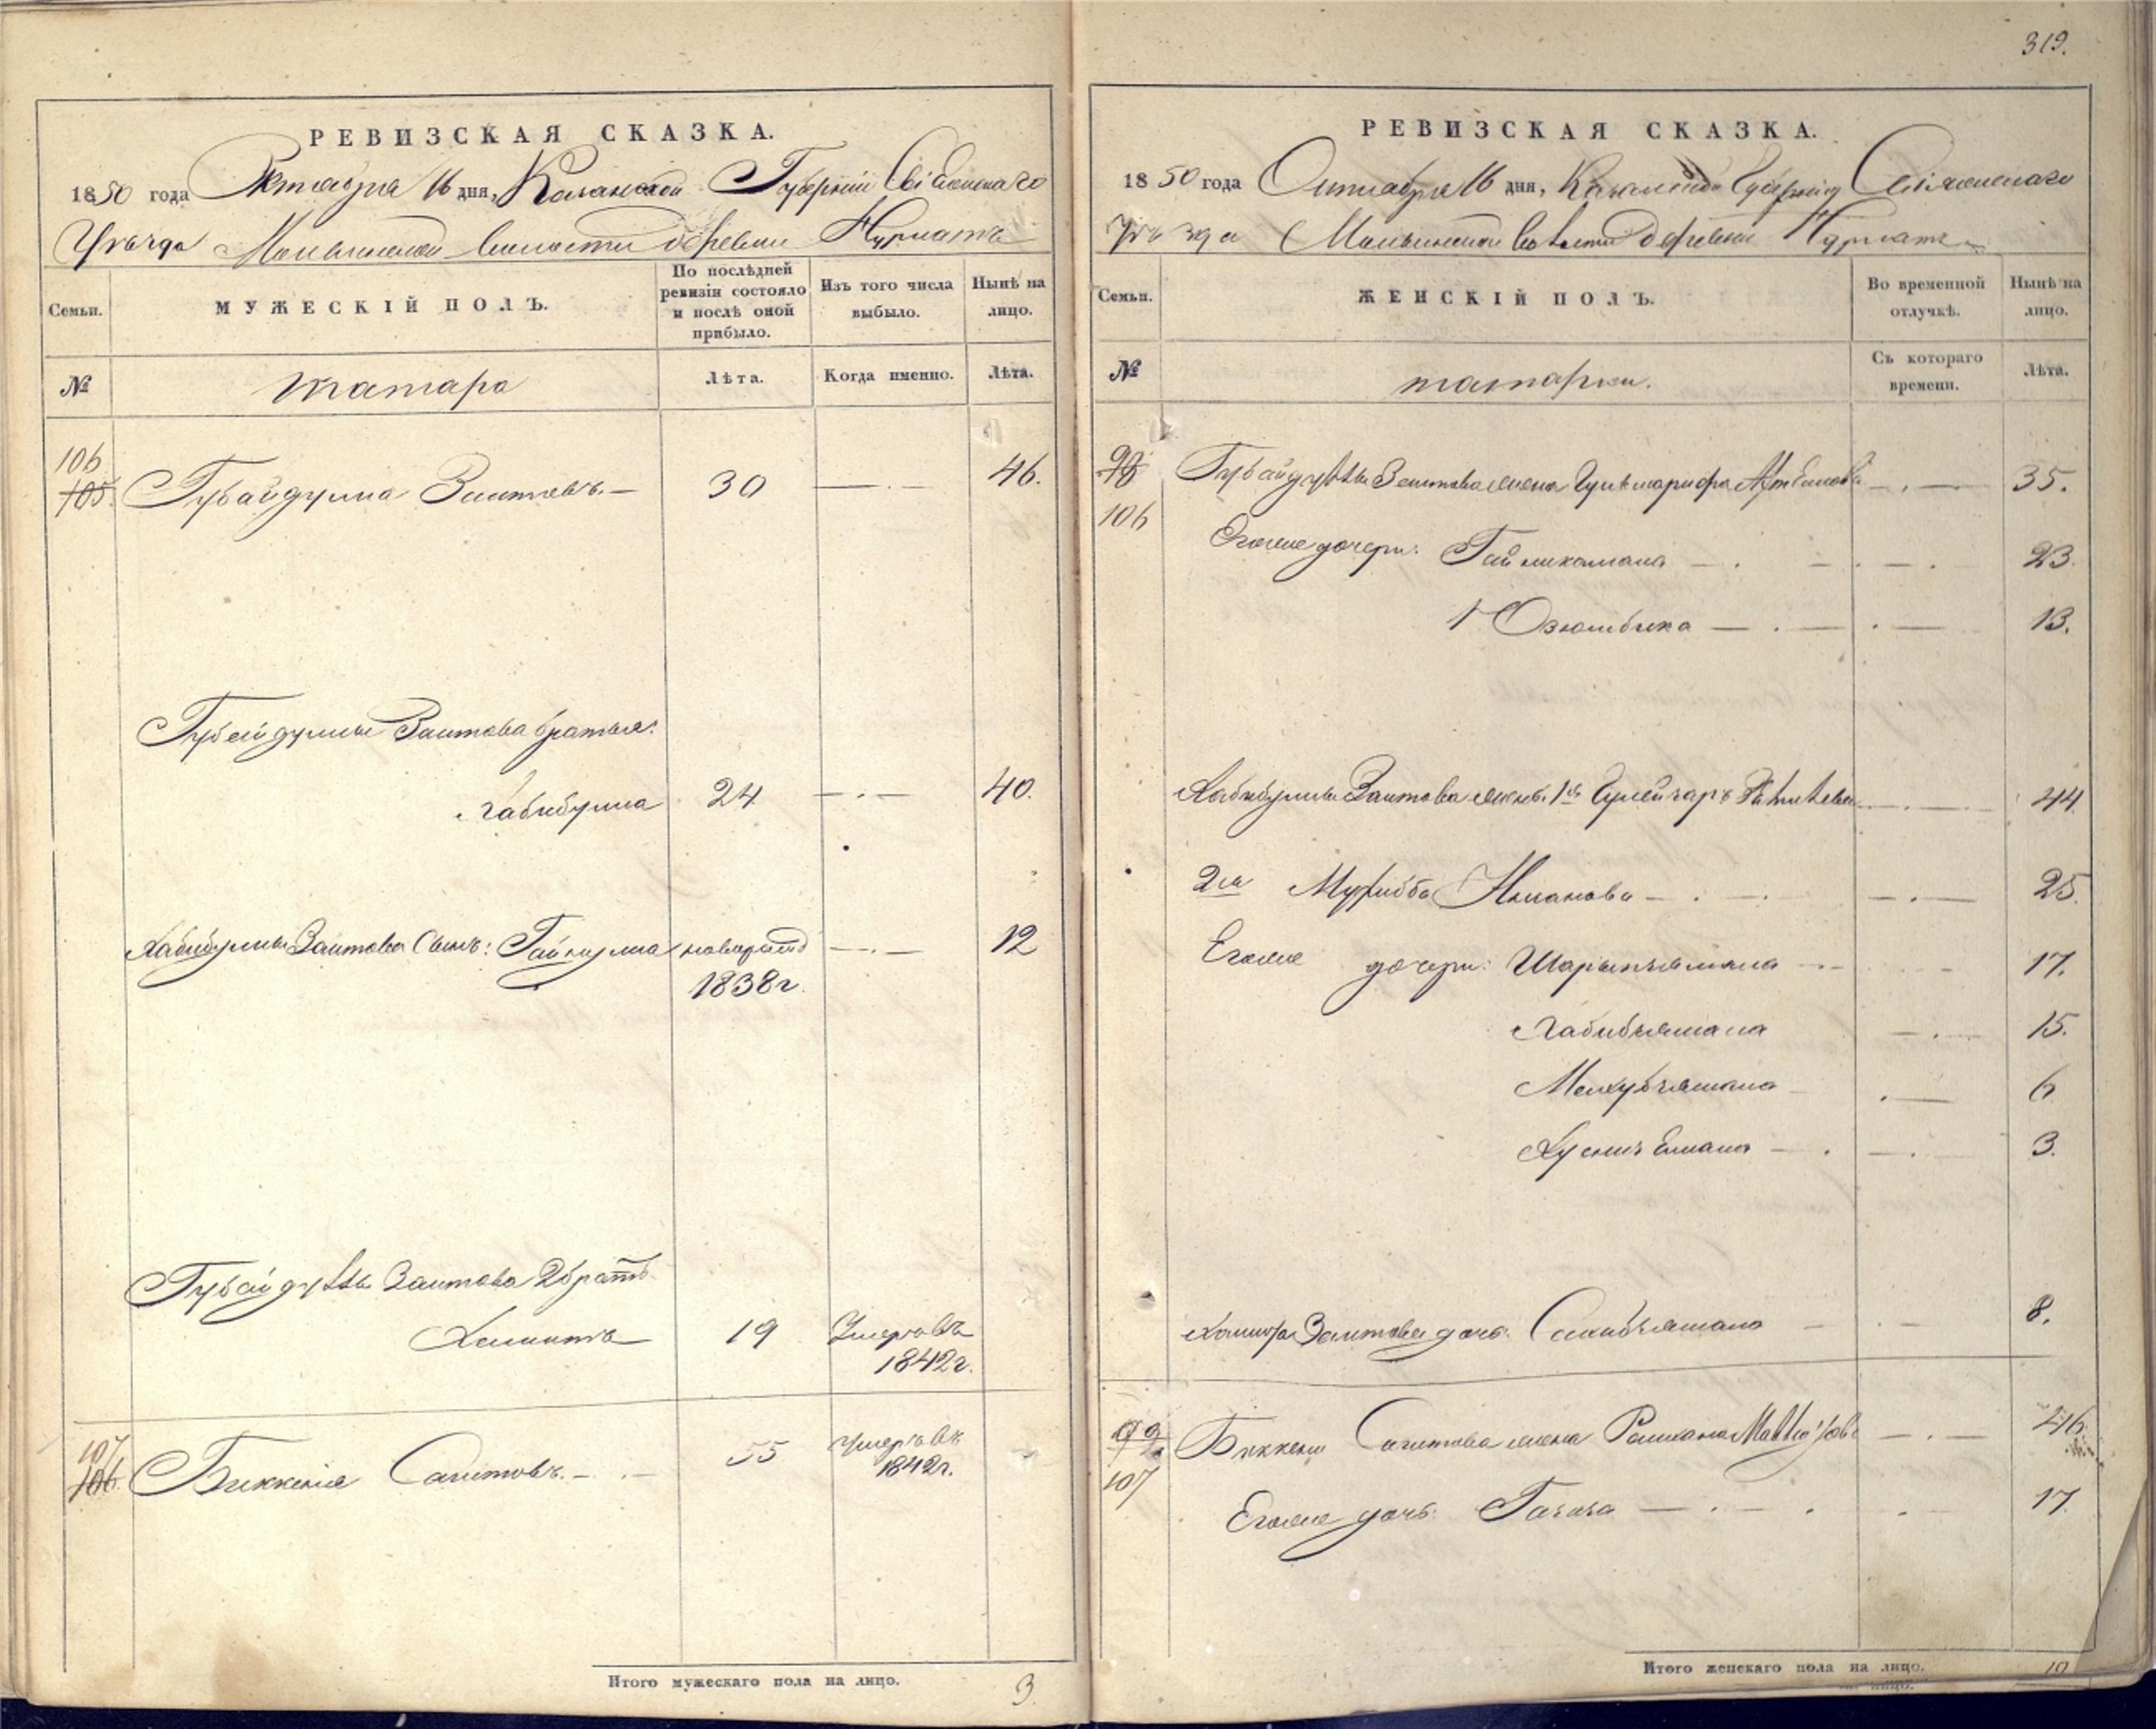 РЕВИЗСКАЯ СКАЗКА.
1850 года Октября 16 дня, Казанской Губернии Свіяжскаго
Уѣзда волости деревни Нурлатъ
Семьи.
МУЖЕСКІЙ ПОЛЪ.
По послѣдней ревизіи состояло и послѣ оной прибыло.
Изъ того числа выбыло.
Нынѣ на лицо.
№
татара
Лѣта.
Когда именно.
Лѣта.
106
105 Губайдулла Заитовъ. — 30 — . — 46.
Губайдуллы Заитова братья:
Хабибулла 24 — . — 40.
Хабибуллы Заитова Сынъ: Гайнулла новорожд — . — 12
1838г.
Губайдуллы Заитова 2 братъ
Хамитъ 19 Умеръ въ
1842г.
107
106 Биккеня Сагитовъ. — . — 55 умеръ въ
1842г.
Итого мужескаго пола на лицо. 3.
319.
РЕВИЗСКАЯ СКАЗКА.
1850 года Октября 16 дня, Казанской Губерніи Свіяжскаго
Уѣзда волости деревни Нурлатъ
Семьи.
ЖЕНСКІЙ ПОЛЪ.
Во временной отлучкѣ.
Нынѣ на лицо.
№
татарки.
Съ котораго времени.
Лѣта.
98 Губайдуллы Заитова жена — . — 35.
106
Егоже дочери: Гайникамала — . — . — . 23.
1 Озюмбика — . — . — 13.
Хабибуллы Заитова жены. 1я — . — 44.
2я — . — . — . — 25.
Егоже дочери: Шарипъямала — . — 17.
Хабибъямала — . — 15.
Махубъямала — . — 6
Хуснизъямала — . — . 3.
Хамита Заитова дочь: Сахибъямала — . — 8.
99 Биккени Сагитова жена — . — 46.
107
Егоже дочь: Газиза — . — . . 17.
Итого женскаго пола на лицо. 10